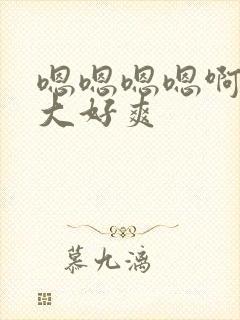 嗯嗯嗯嗯啊
大好爽
慕九漓